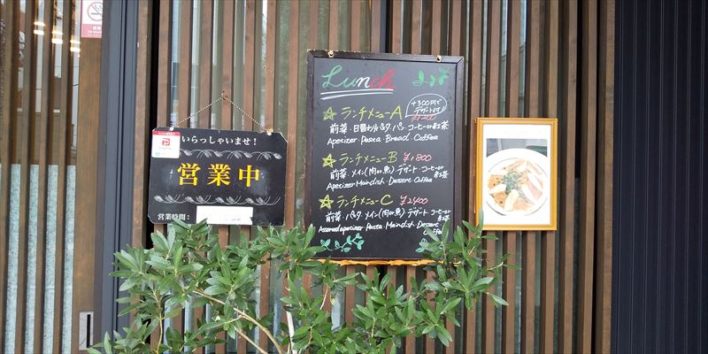 いらっしゃいませ!
営業中
営業時間:
Lunch
☆ランチメニューA
+300円で
デザート付
前菜・日替わりパスタ、パン コーヒーor紅茶
Apetizer Pasta Bread Coffee
☆ランチメニューB ¥1800
前菜 メイン(肉or魚) デザート コーヒーor紅茶
Apetizer Maindish Dessert Coffee
☆ランチメニューC ¥2400
前菜 パスタ メイン(肉or魚) デザート コーヒーor紅茶
Assored apetizer Pasta Maindish Dessert
Coffee